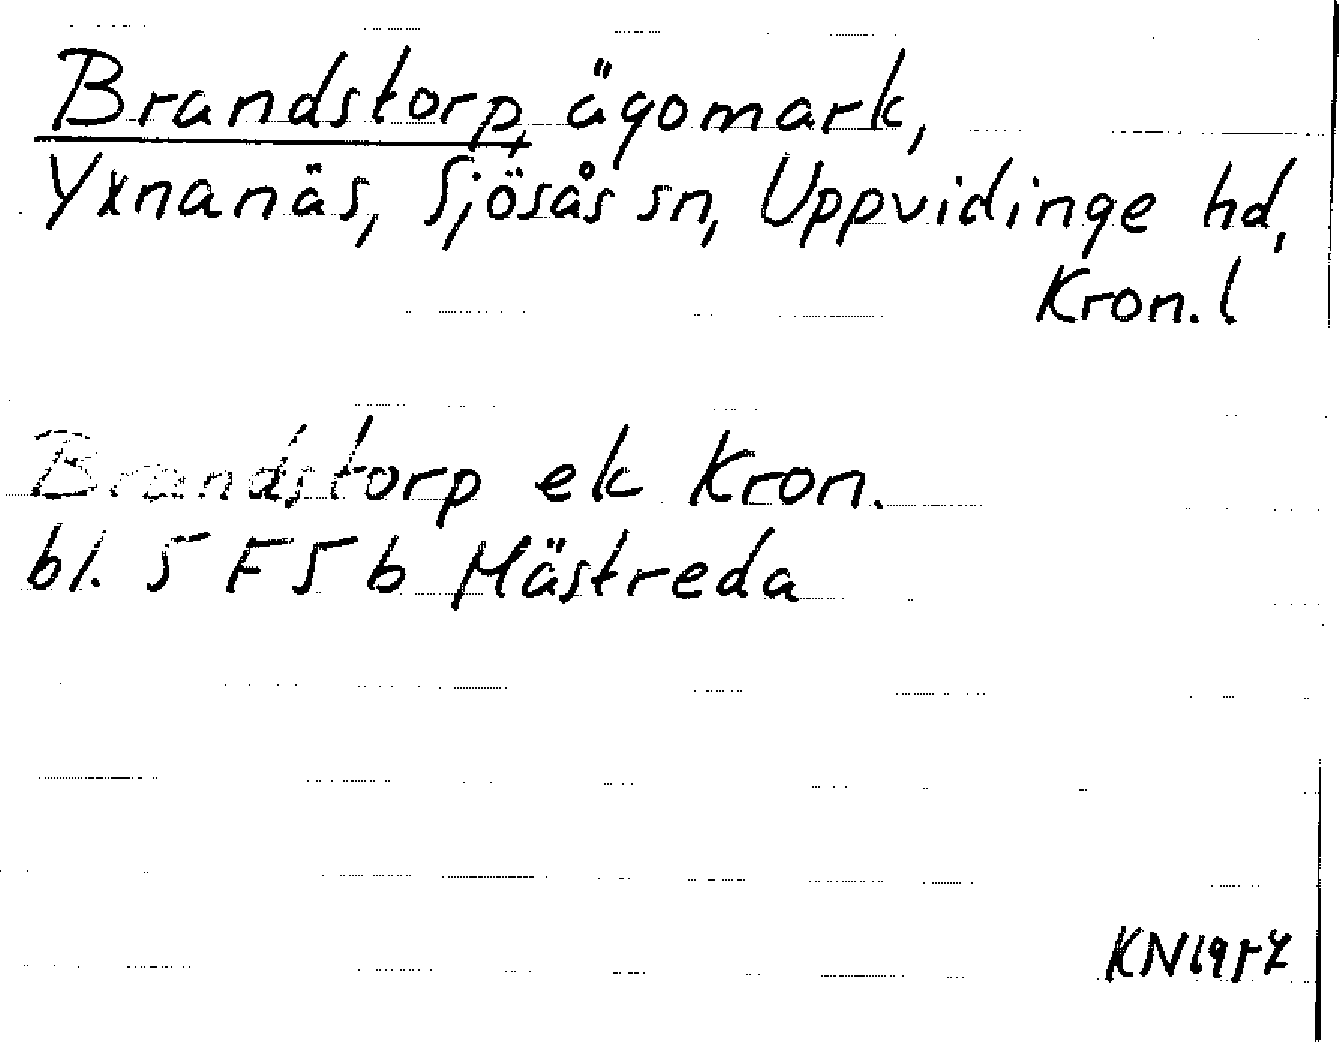 Brandstorp, ägomark,
Yxnanäs, Sjösås sn, Uppvidinge hd,
Kron. l.
Brandstorp ek Kron.
bl. 5 F 5 b Mästreda
KN 1957